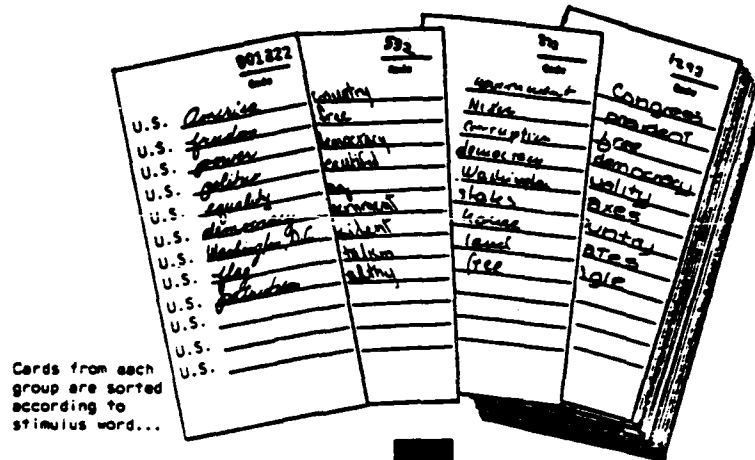 001222
Code
U.S. America
U.S. freedom
U.S. power
U.S. politics
U.S. equality
U.S. democracy
U.S. Washington, D.C.
U.S. flag
U.S. patriotism
U.S.
U.S.
U.S.
532
Code
country
free
democracy
eautiful
ernment
esident
talism
althy
Code
government
Nixon
corruption
democracy
Washington
states
house
land
free
1293
Code
Congress
president
free
democracy
uality
axes
untry
ates
gle
Cards from each
group are sorted
according to
stimulus word...